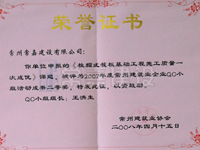 荣誉证书
常州常嘉建设有限公司:
你单位申报的《提高筏板基础工程施工质量一
次成优》课题,被评为2007年度常州建筑业企业QC小
组活动成果二等奖,特发此证,以资鼓励。
QC小组组长:王洪生
常州建筑业协会
二〇〇八年四月十五日